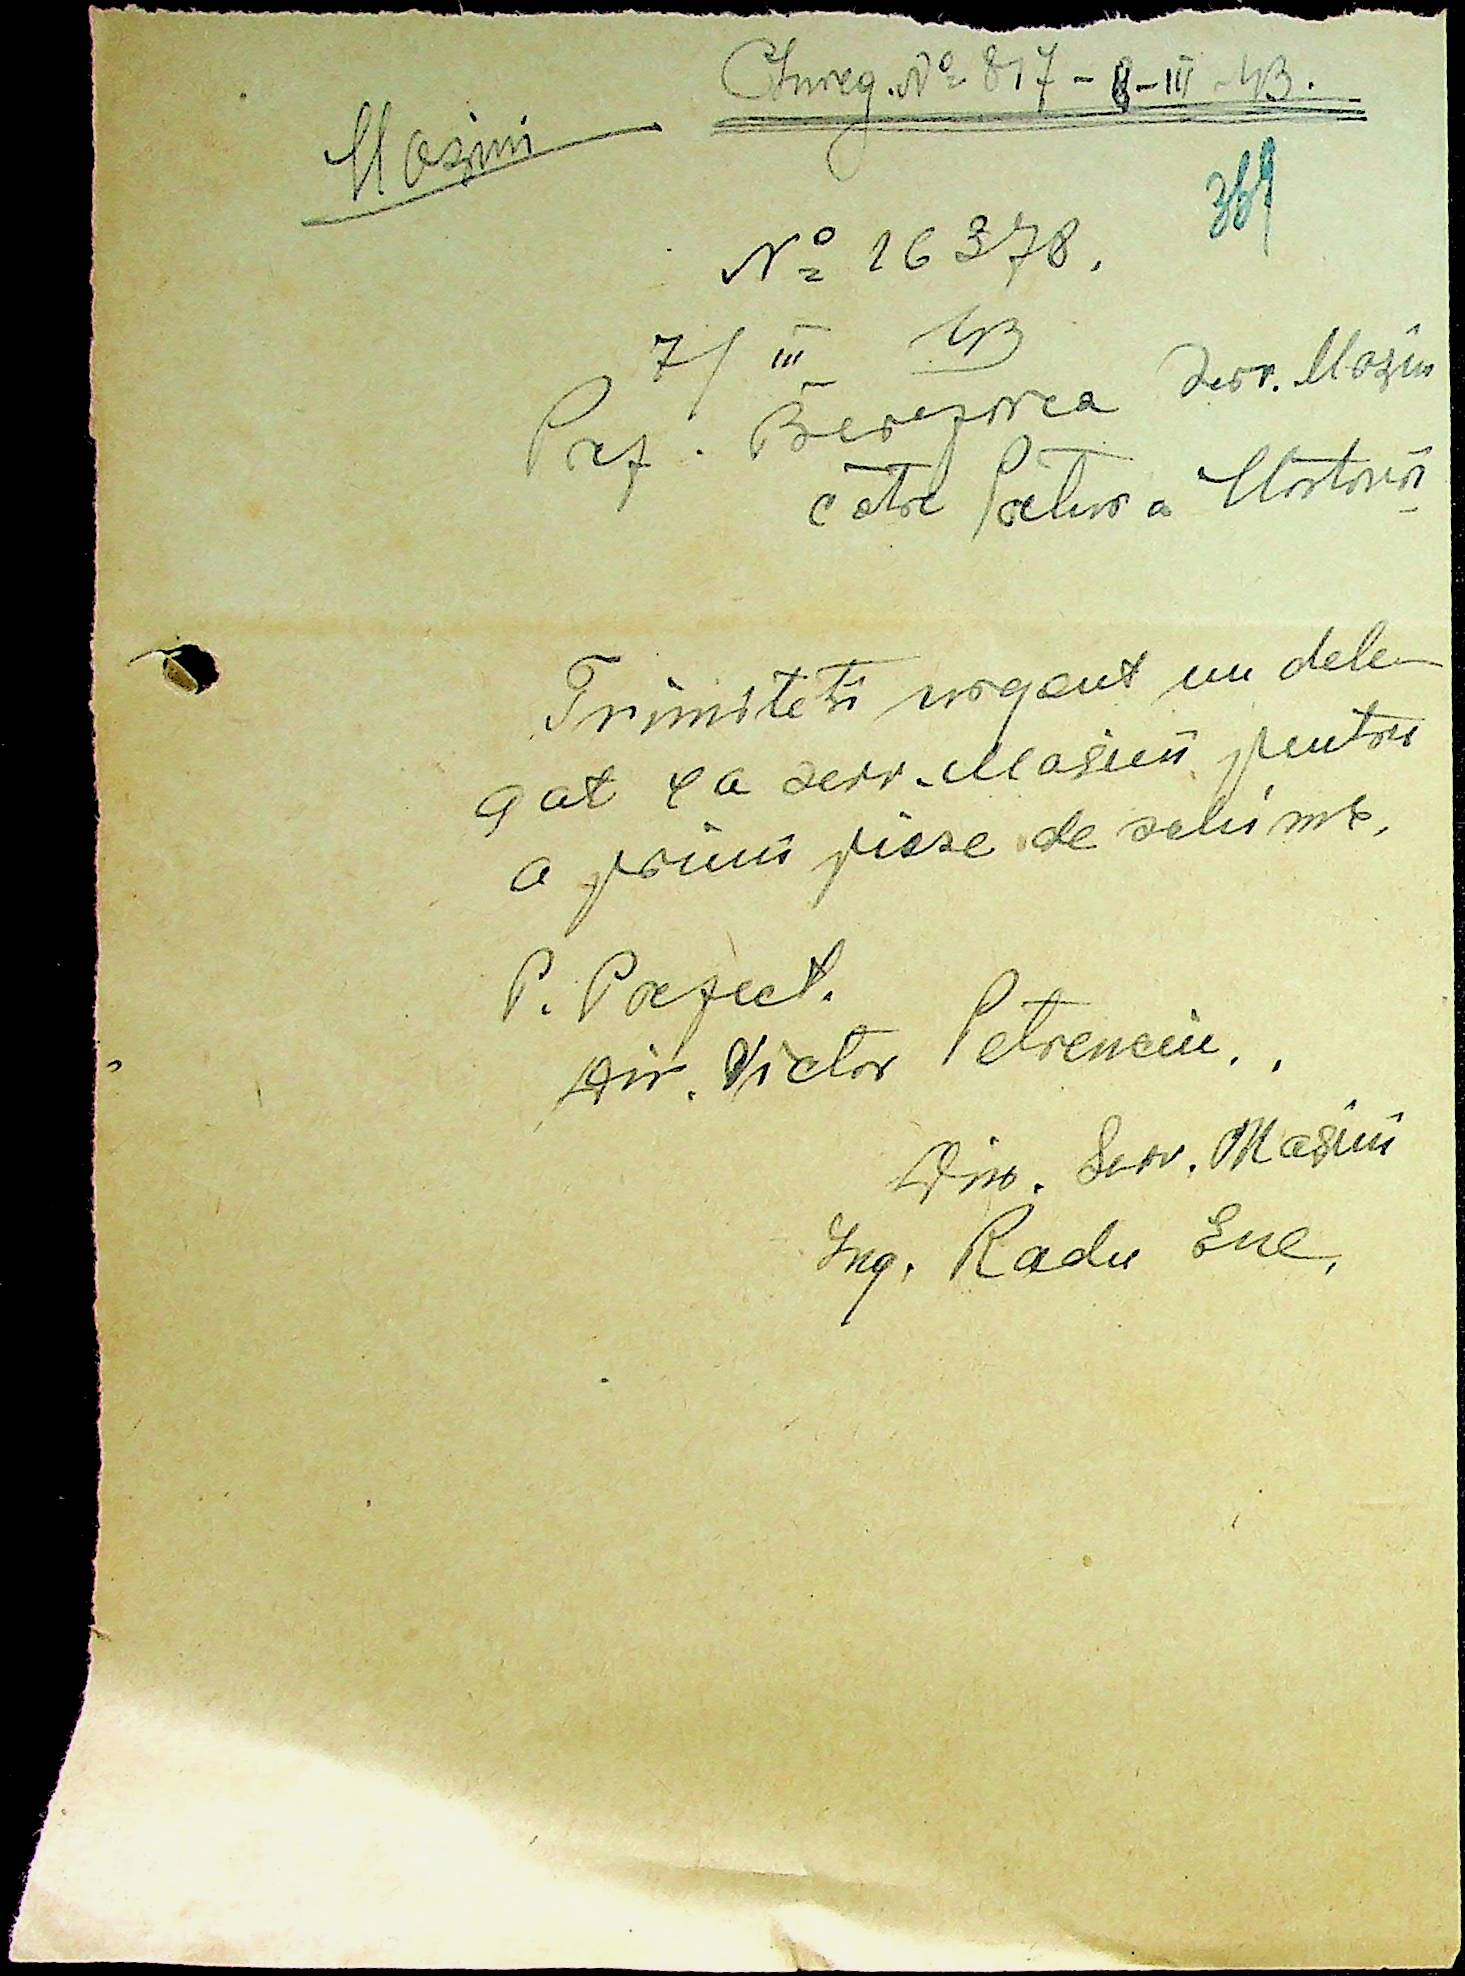 Înreg. Nº 817 - 8 - III - 43.
Mașini
389
Nº 16378.
7/III 43
Pref. Berezovca Serv. Mașini
către Pretura Mostovoi
Trimiteți urgent un dele-
gat la serv. Mașini pentru
a primi piese de schimb.
P. Prefect.
Dir. Victor Petrenciu.
Dir. Serv. Mașini
Ing. Radu Ene.